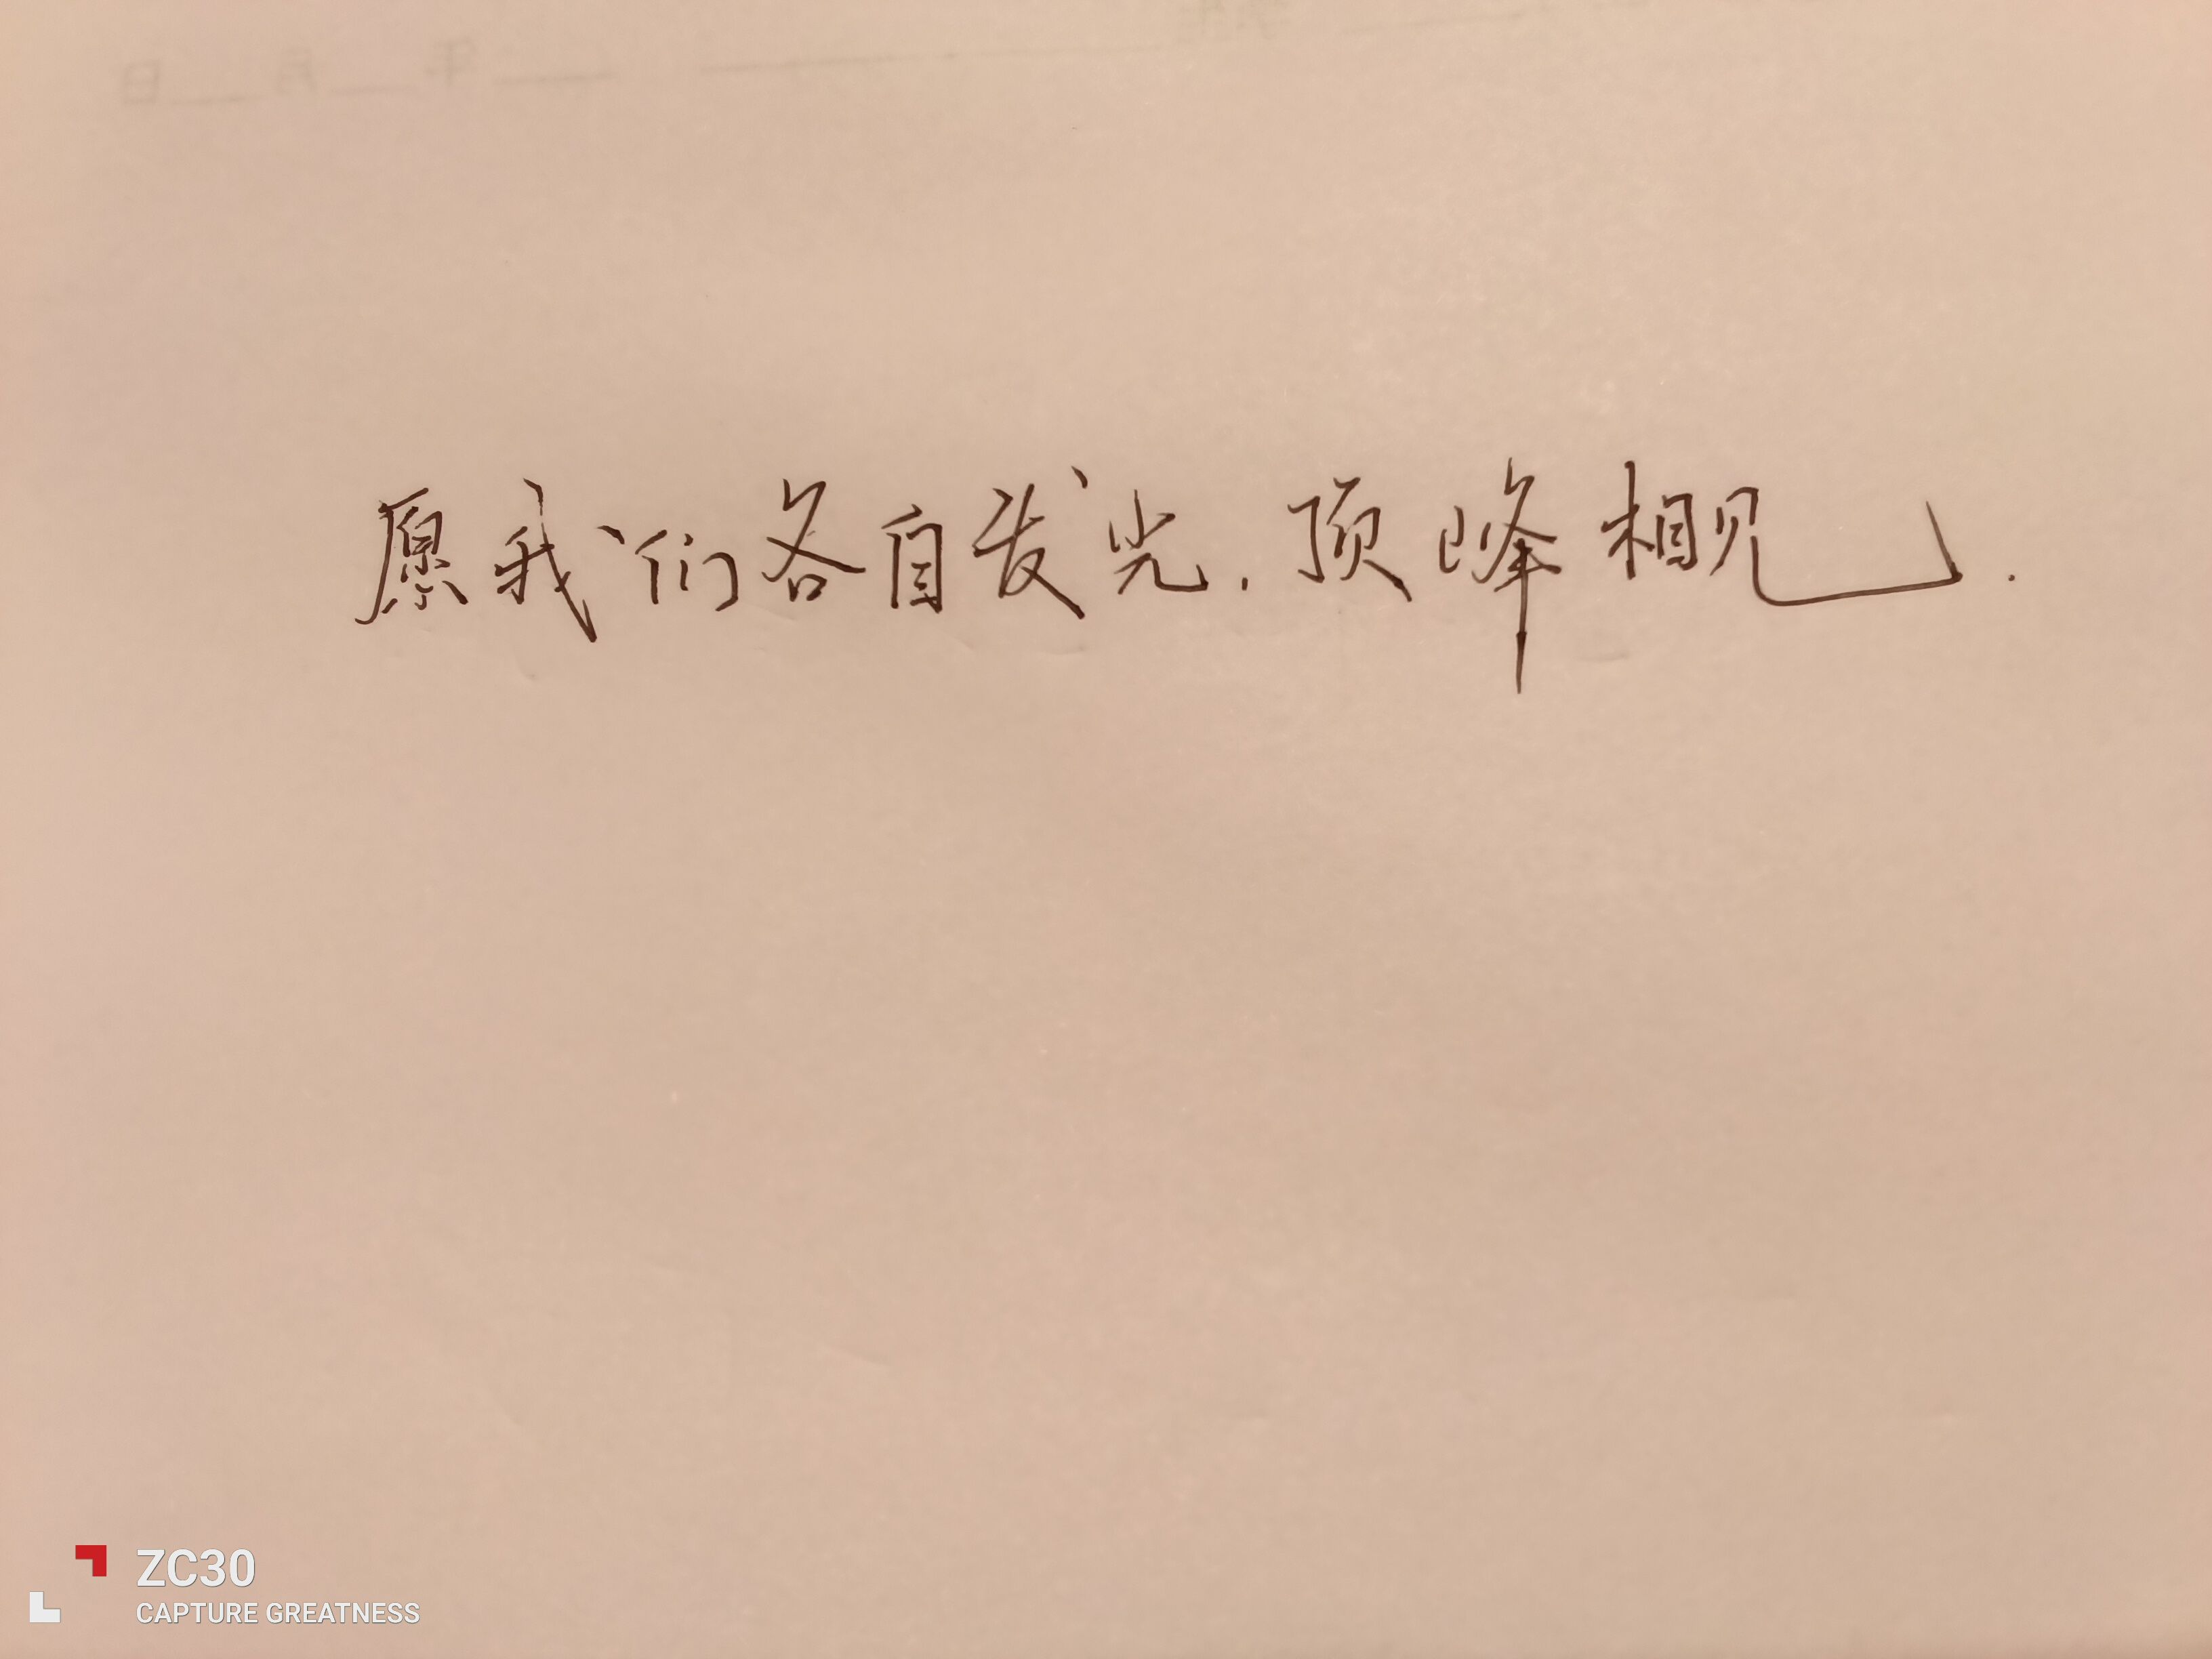 愿我们各自发光.顶峰相见.
ZC30
CAPTURE GREATNESS